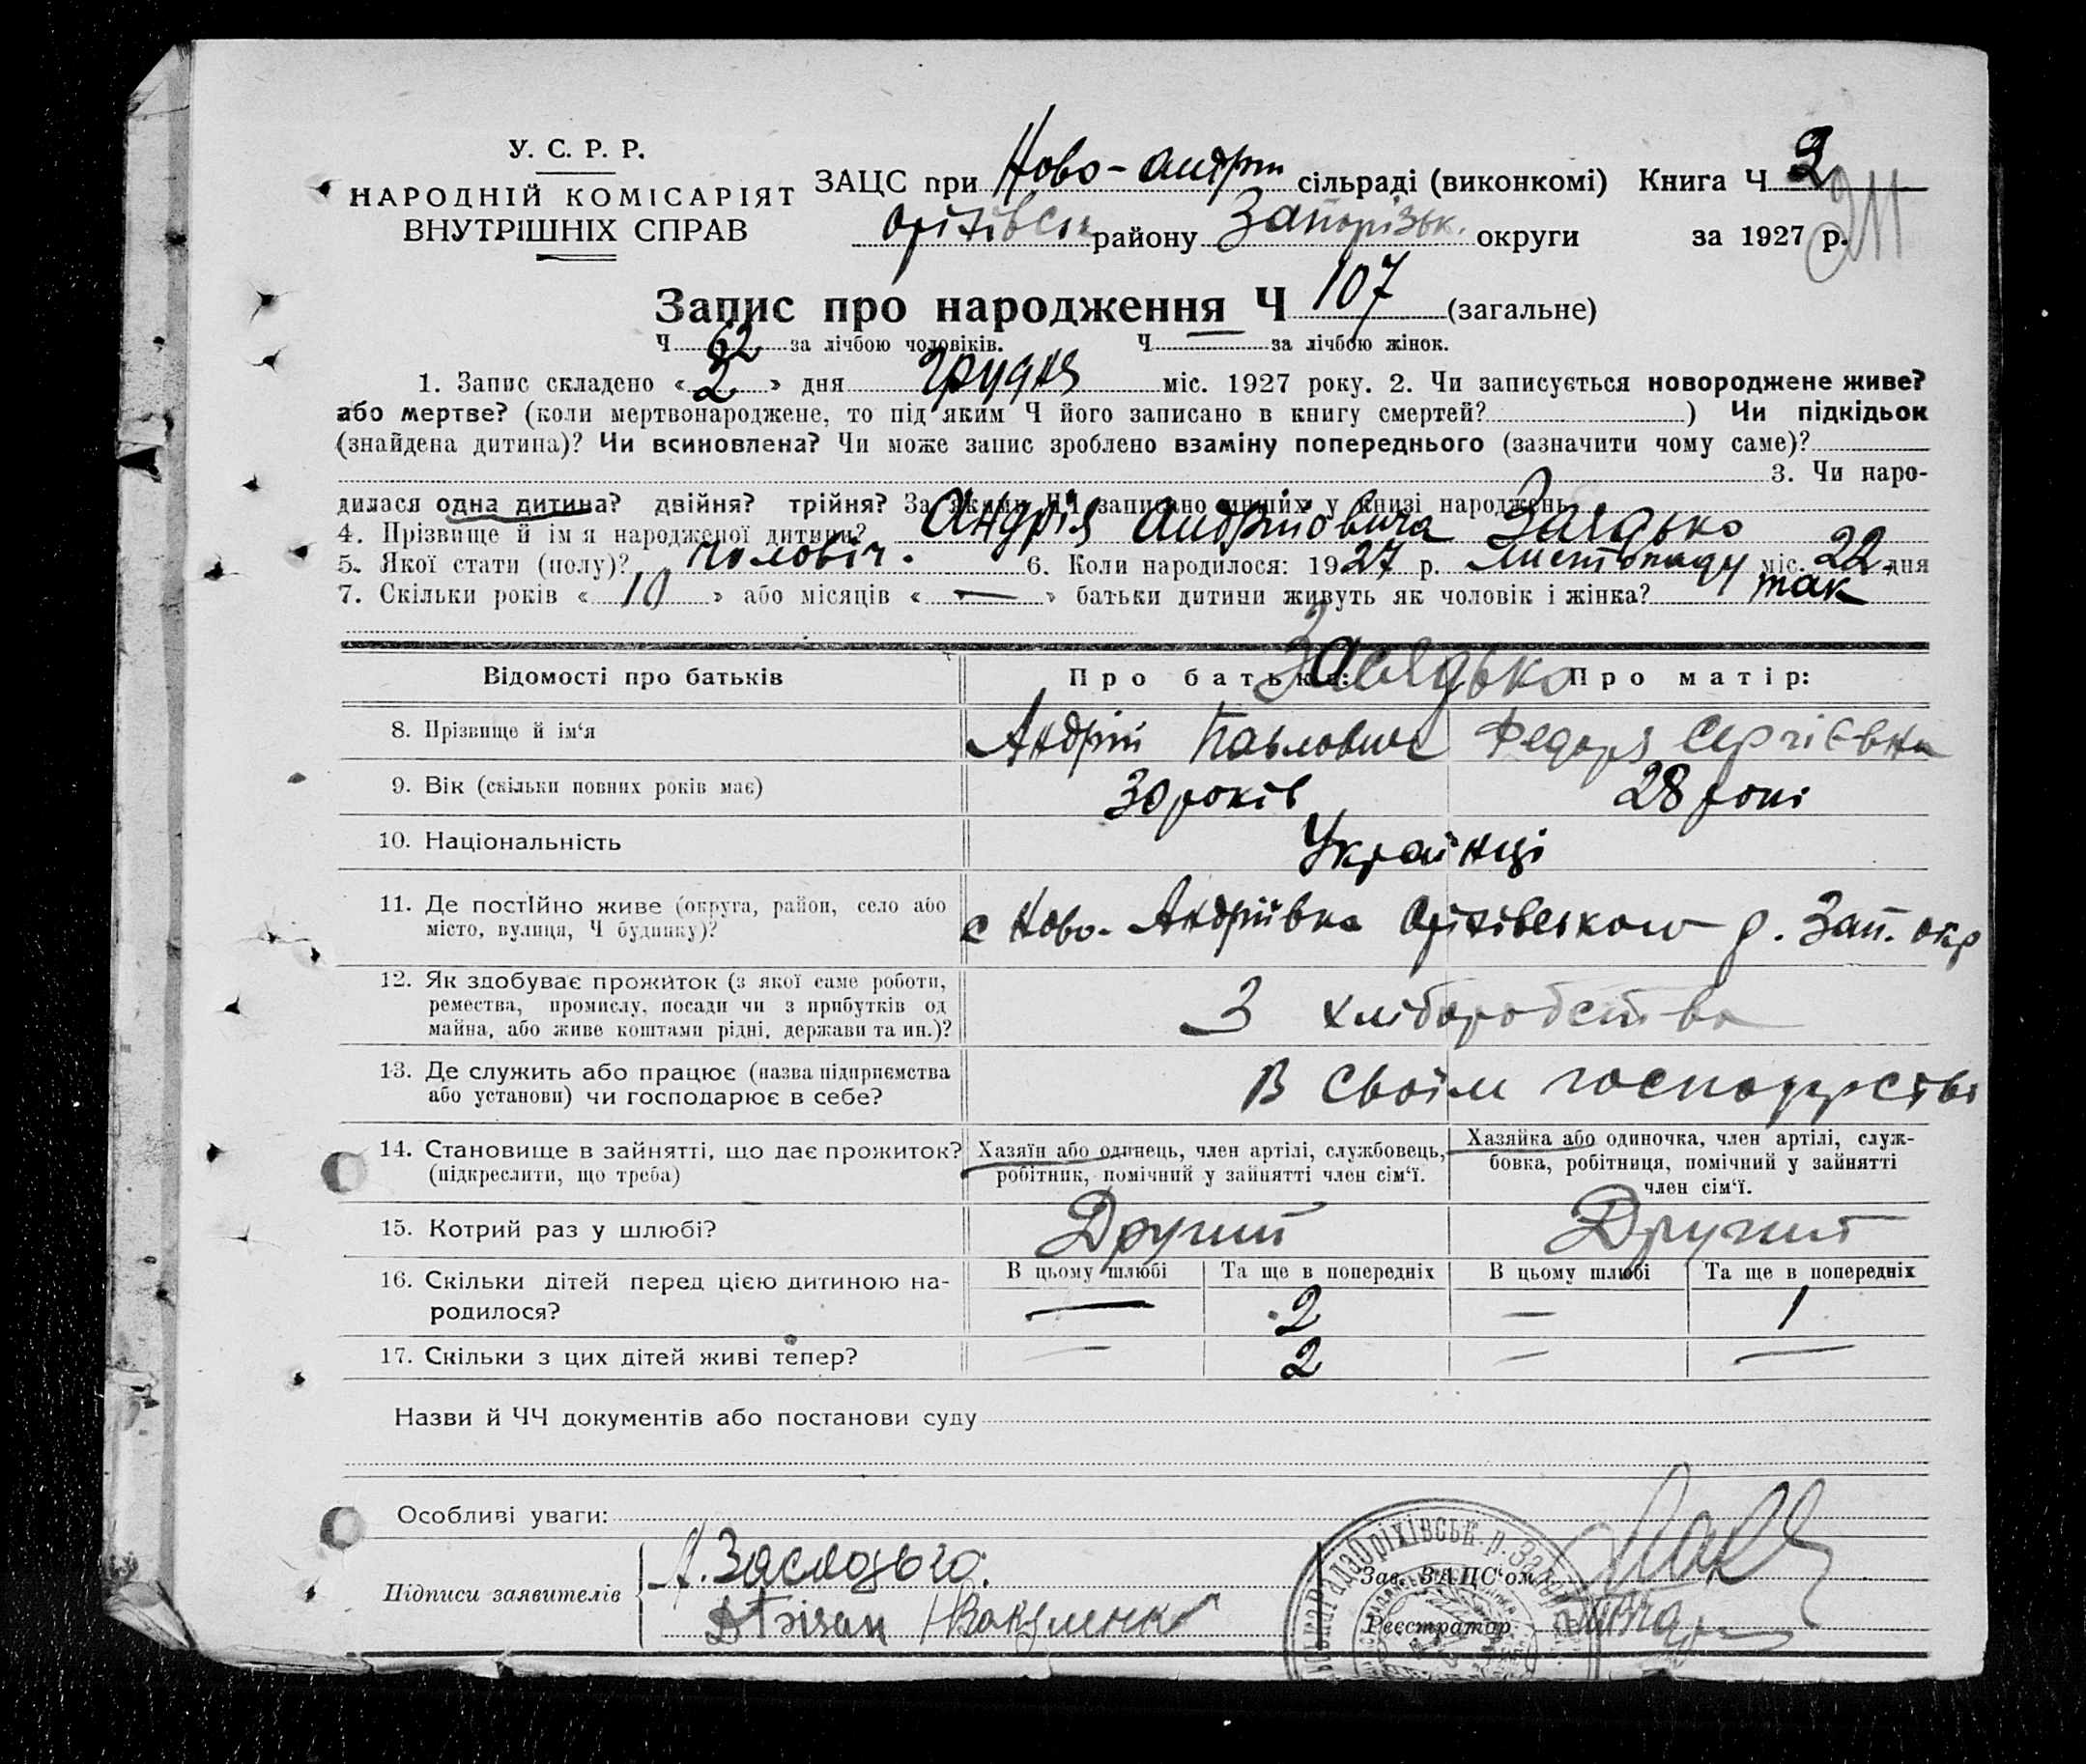 У. С. Р. Р.
НАРОДНІЙ КОМІСАРІЯТ
ВНУТРІШНІХ СПРАВ
ЗАЦС при Ново-Андрії сільраді (виконкомі) Книга Ч 2
Оріхівськ району Запорізьк. округи за 1927 р.
211
Запис про народження Ч 107 (загальне)
Ч 62 за лічбою чоловіків. Ч — за лічбою жінок.
1. Запис складено «2» дня Грудня міс. 1927 року. 2. Чи записується новороджене живе?
або мертве? (коли мертвонароджене, то під яким Ч його записано в книгу смертей? ) Чи підкідьок
(знайдена дитина)? Чи всиновлена? Чи може запис зроблено взаміну попереднього (зазначити чому саме)?
3. Чи наро-
дилася одна дитина? двійня? трійня? За якими ЧЧ записано инших у книзі народжень
4. Прізвище й ім'я народженої дитини? Андрія Андрійовича
5. Якої стати (полу)? чоловіч. 6. Коли народилося: 1927 р. Листопаду міс. 22 дня
7. Скільки років «10» або місяців «—» батьки дитини живуть як чоловік і жінка? так
Відомості про батьків Про батька: Про матір:
Заслядько
8. Прізвище й ім'я Андрій Павлович Федоря Сергієвна
9. Вік (скільки повних років має) 30 років 28 рокі
10. Національність Українці
11. Де постійно живе (округа, район, село або
місто, вулиця, Ч будинку)?
с Ново-Андріївка Оріхівського р. Зап. окр
12. Як здобуває прожиток (з якої саме роботи,
ремества, промислу, посади чи з прибутків од
майна, або живе коштами рідні, держави та ин.)?
З хліборобства
13. Де служить або працює (назва підприємства
або установи) чи господарює в себе?
В своїм господарстві
14. Становище в зайнятті, що дає прожиток?
(підкреслити, що треба)
Хазяїн або одинець, член артілі, службовець,
робітник, помічний у зайнятті член сім'ї.
Хазяйка або одиночка, член артілі, служ-
бовка, робітниця, помічний у зайнятті
член сім'ї.
15. Котрий раз у шлюбі? Другий Другий
16. Скільки дітей перед цією дитиною на-
родилося?
В цьому шлюбі Та ще в попередніх В цьому шлюбі Та ще в попередніх
— 2 — 1
17. Скільки з цих дітей живі тепер? — 2 — —
Назви й ЧЧ документів або постанови суду
Особливі уваги:
Підписи заявителів
Вакуленко
Зав. ЗАЦС'ом
Реєстратор
Оріхівськ. р.